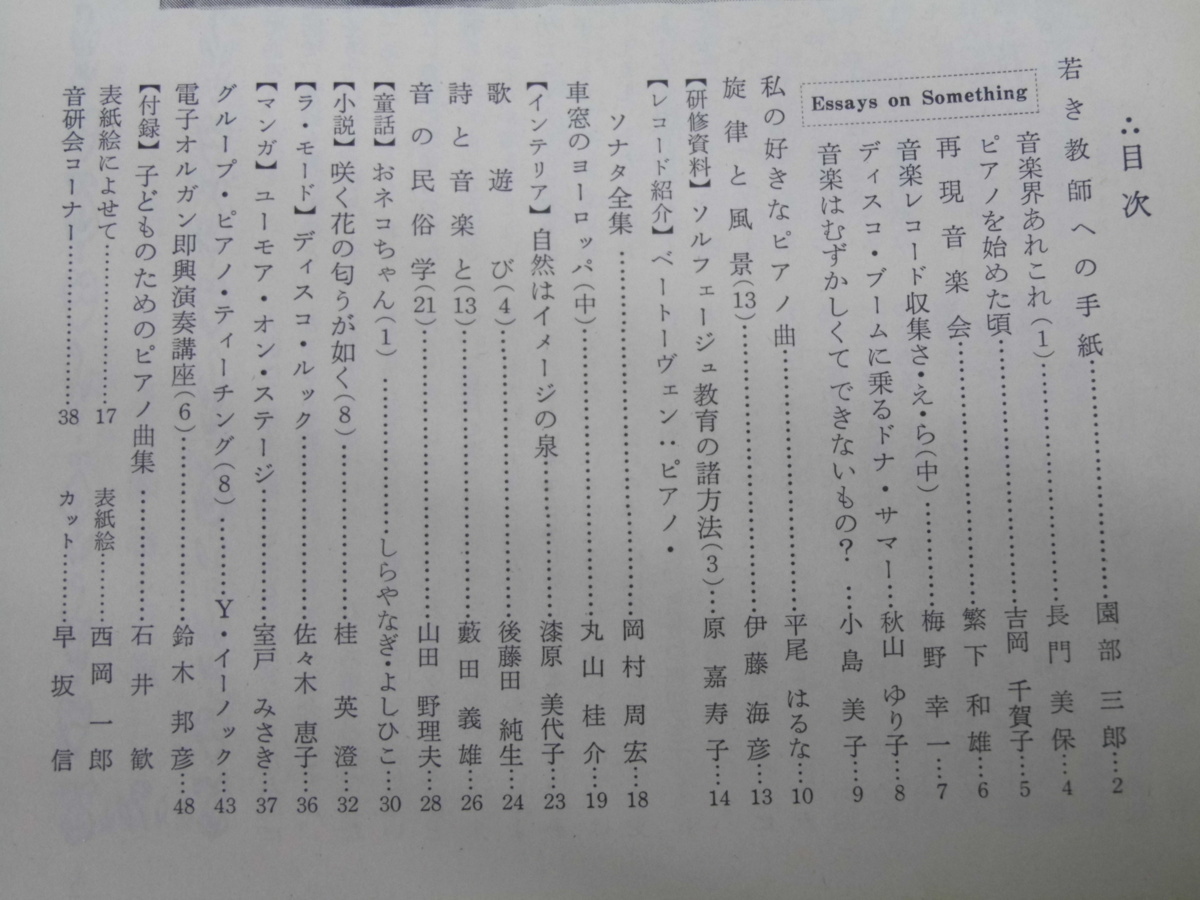 ∴目次
若き教師への手紙……………園部三郎…2
音楽界あれこれ(1)……………長門美保…4
Essays on Something
ピアノを始めた頃……………吉岡千賀子…5
再現音楽会……………繁下和雄…6
音楽レコード収集さ・え・ら(中)……………梅野幸一…7
ディスコ・ブームに乗るドナ・サマー…秋山ゆり子…8
音楽はむずかしくてできないもの？…小島美子…9
私の好きなピアノ曲……………平尾はるな…10
旋律と風景(13)……………伊藤海彦…13
【研修資料】ソルフェージュ教育の諸方法(3)…原嘉寿子…14
【レコード紹介】ベートーヴェン：ピアノ・
ソナタ全集……………岡村周宏…18
車窓のヨーロッパ(中)……………丸山桂介…19
【インテリア】自然はイメージの泉……………漆原美代子…23
歌遊び(4)……………後藤田純生…24
詩と音楽と(13)……………藪田義雄…26
音の民俗学(21)……………山田野理夫…28
【童話】おネコちゃん(1)……………しらやなぎ・よしひこ…30
【小説】咲く花の匂うが如く(8)……………桂英澄…32
【ラ・モード】ディスコ・ルック……………佐々木恵子…36
【マンガ】ユーモア・オン・ステージ……………室戸みさき…37
グループ・ピアノ・ティーチング(8)……………Y・イーノック…43
電子オルガン即興演奏講座(6)……………鈴木邦彦…48
【付録】子どものためのピアノ曲集……………石井歓
表紙絵によせて……………17 表紙絵………西岡一郎
音研会コーナー……………38 カット………早坂信